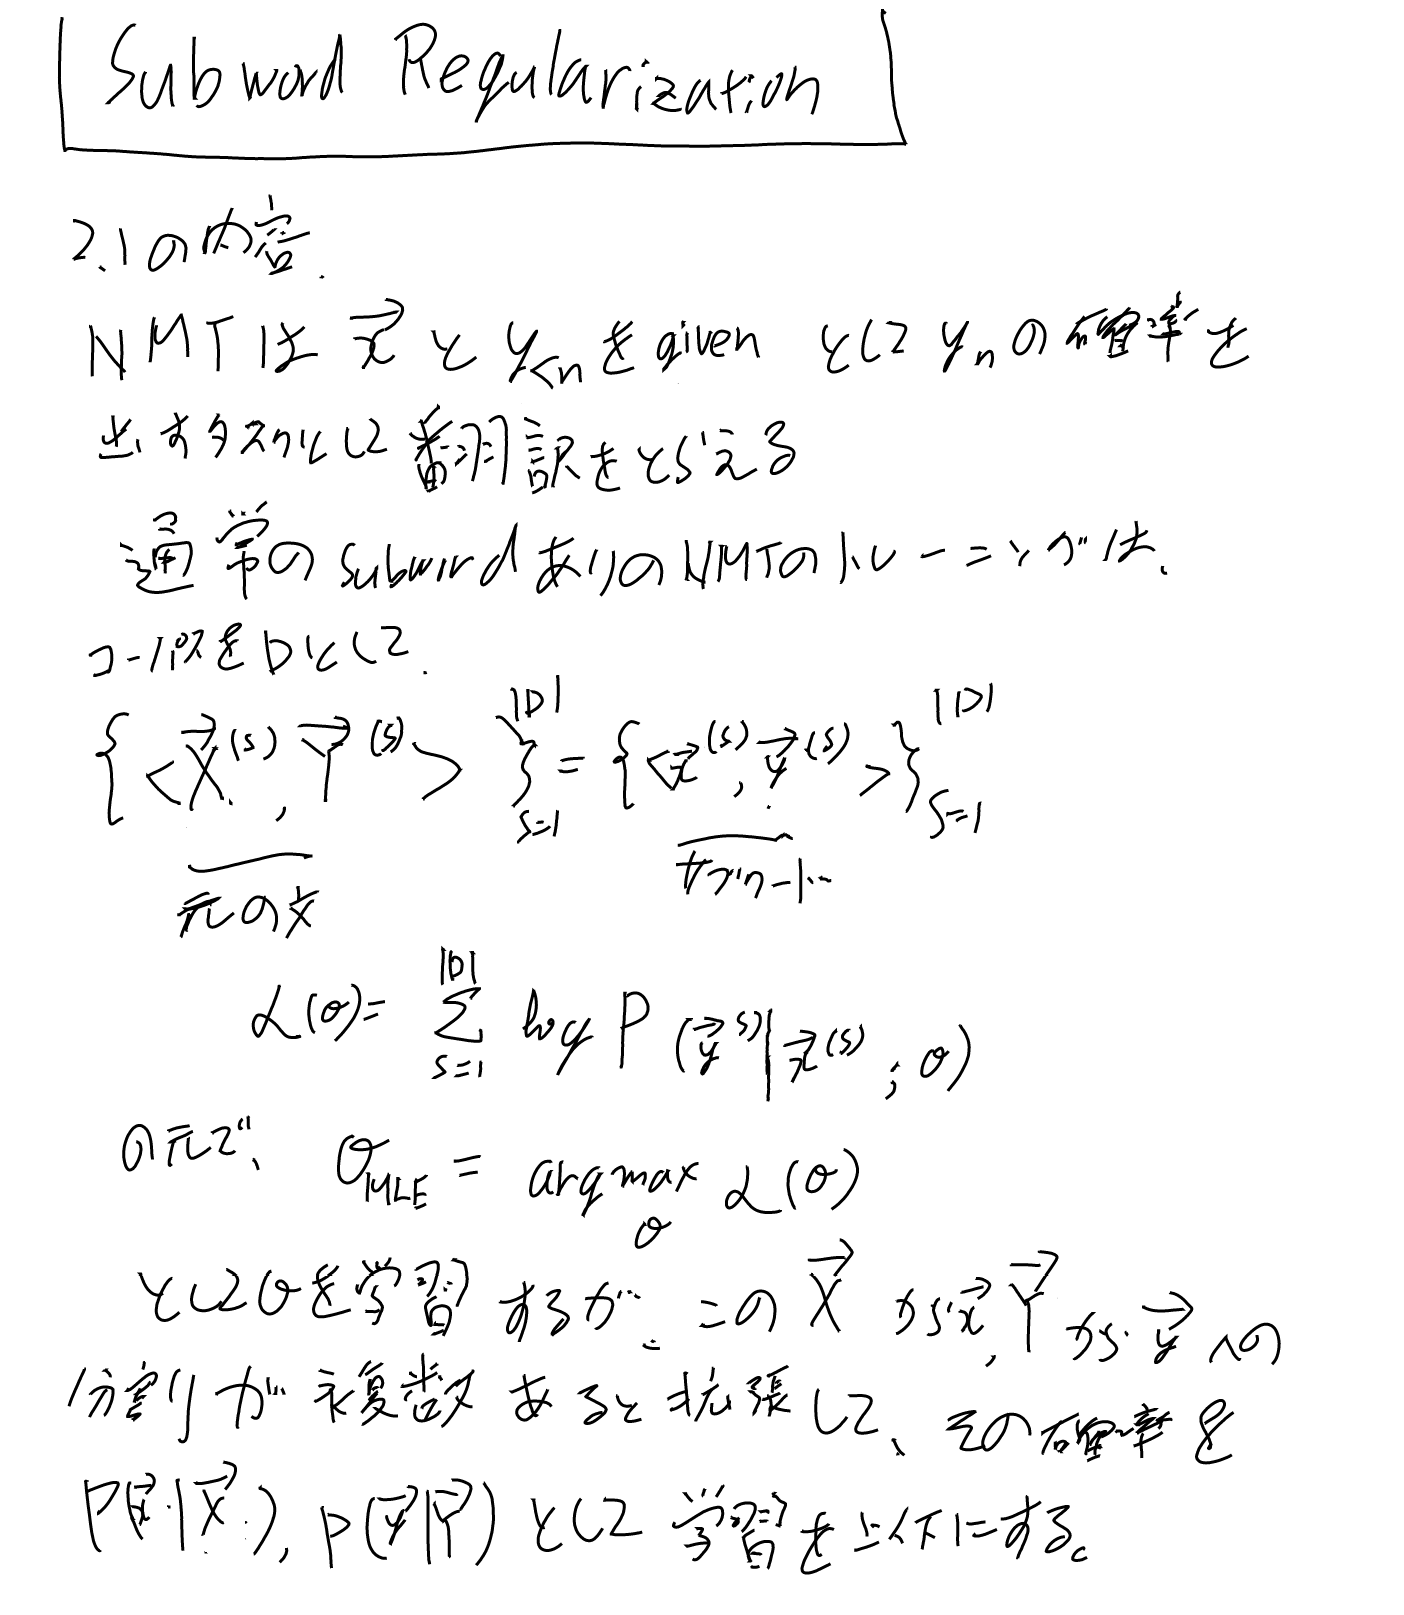 Subword Regularization
2.1の内容.
NMTは x→ と y<n を given として yn の確率を
出すタスクとして翻訳をとらえる
通常のsubwordありのNMTのトレーニングは、
コーパスをDとして.
{<X→(s), Y→(s)>}|D| s=1 = {<x→(s), y→(s)>}|D| s=1
元の文 サブワード
L(θ) = Σ|D| s=1 log P(y→(s)|x→(s); θ)
の元で、 θMLE = argmax θ L(θ)
としてθを学習するが、この X→ から x→, Y→ から y→ への
分割が複数あると拡張して、その確率を
P(x→|X→), P(y→|Y→) として 学習を にする。